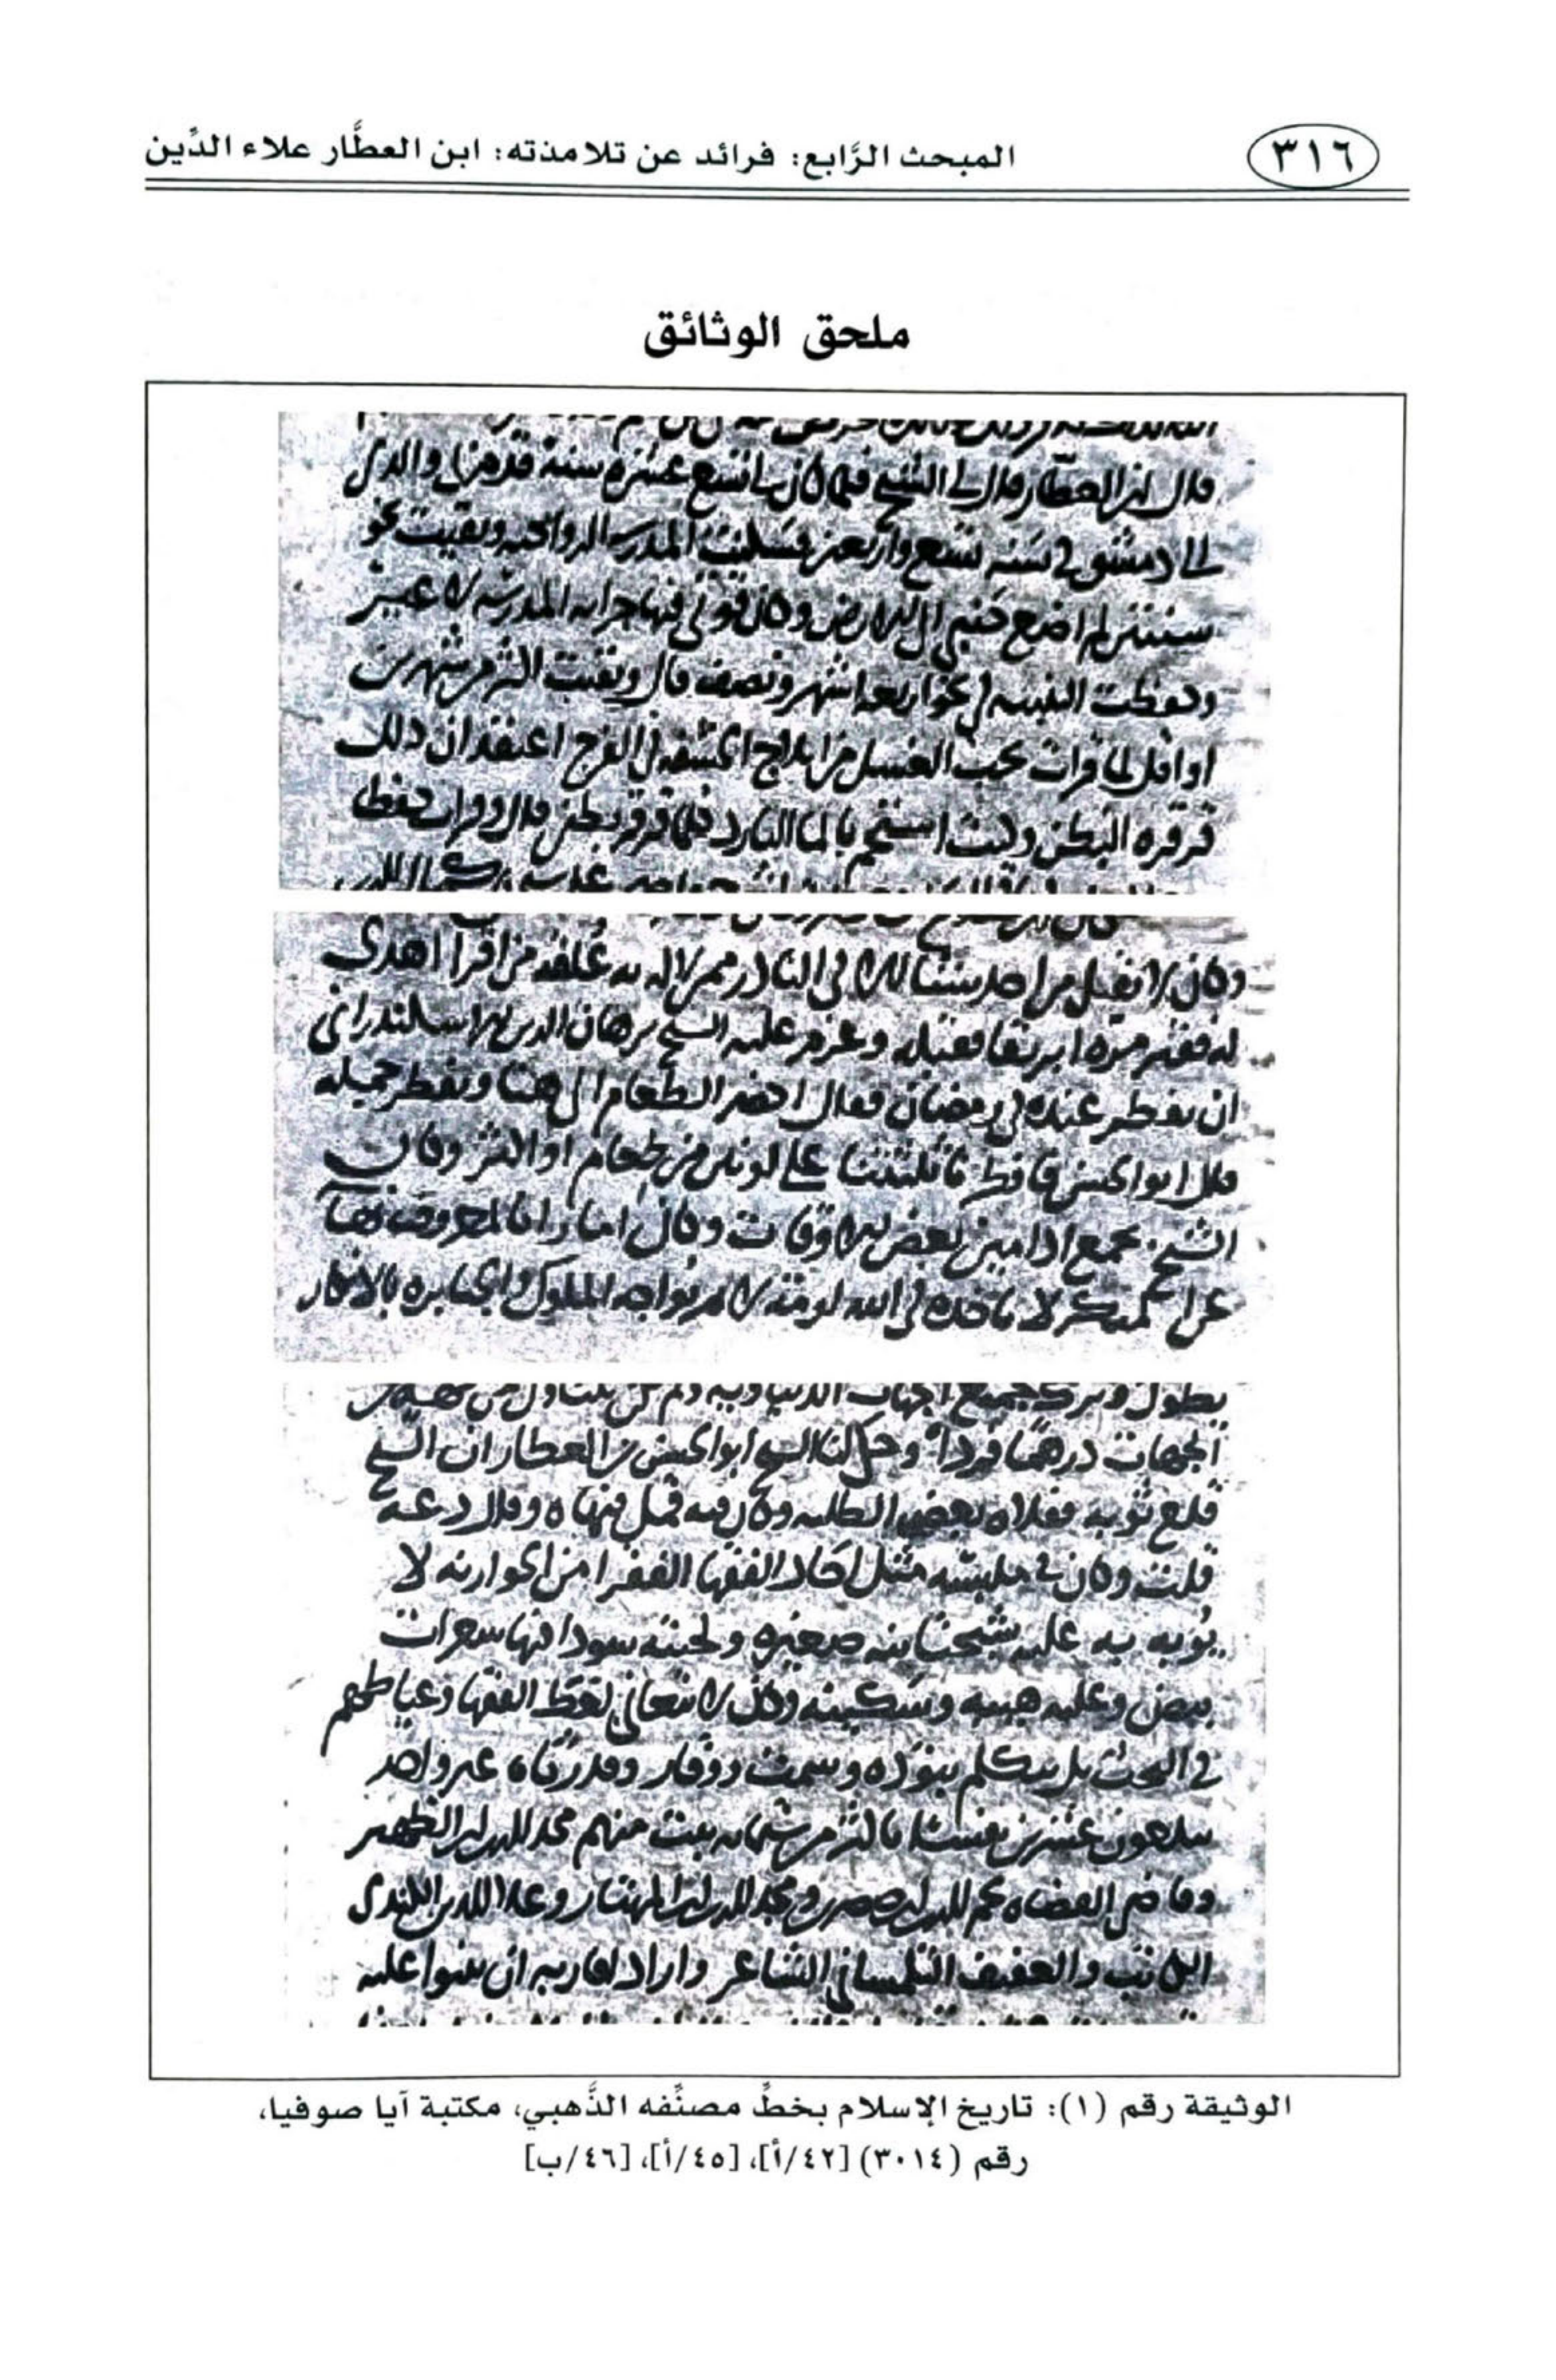 ٣١٦
المبحث الرَّابع: فرائد عن تلامذته: ابن العطَّار علاء الدِّين
ملحق الوثائق
قال ابن العطار قال لي الشيخ فلما كان لي تسع عشرة سنة قدم بي والدي
الى دمشق في سنة تسع واربعين فسكنت المدرسة الرواحية وبقيت نحو
سنتين لم اضع جنبي الى الارض وكان قوتي فيها جراية المدرسة لا غير
وحفظت التنبيه في نحو اربعة اشهر ونصف قال وبقيت اكثر من شهرين
او اقل لما قرات يجب الغسل من ايلاج الحشفة في الفرج اعتقد ان ذلك
قرقرة البطن وكنت استحم بالماء البارد كلما قرقر بطني قال وقرات حفظا
وكان لا يقبل من احد شيئا الا في النادر ممن لا له به علقة من اقرا اهدى
له فقير مرة ابريقا فقبله وعزم عليه الشيخ برهان الدين الاسكندراني
ان يفطر عنده في رمضان فقال احضر الطعام الى هنا ونفطر جملة
قال ابو الحسن فافطرنا ثلثتنا على لونين من طعام او اكثر وكان
الشيخ يجمع ادامين بعض الاوقات وكان امارا بالمعروف نهاء
عن المنكر لا تاخذه في الله لومة لائم يواجه الملوك والجبابرة بالانكار
يطول وترك جميع الجهات الدنياوية ولم يكن يتناول من جهة من
الجهات درهما فردا وحكى لنا الشيخ ابو الحسن بن العطار ان الشيخ
قلع ثوبه ففلاه بعض الطلبة وكان فيه قمل فنهاه وقال دعه
قلت وكان في ملبسه مثل احاد الفقهاء الفقراء من الحوارنة لا
يؤبه به عليه شبختانية صغيرة ولحيته سوداء فيها شعرات
بيض وعليه هيبة وسكينة وكان لا يتعانى لغط الفقهاء وعياطهم
في البحث بل يتكلم بتؤدة وسمت ووقار وقد رثاه غير واحد
يبلغون عشرين نفسا باكثر من ستماية بيت منهم مجد الدين ابن الظهير
وقاضي القضاة نجم الدين ابن صصرى ومجد الدين ابن المهتار وعلاء الدين الكندي
الكاتب والعفيف التلمساني الشاعر واراد اقاربه ان يبنوا عليه
الوثيقة رقم (١): تاريخ الإسلام بخطِّ مصنِّفه الذَّهبي، مكتبة آيا صوفيا،
رقم (٣٠١٤) [٤٢/أ]، [٤٥/أ]، [٤٦/ب]